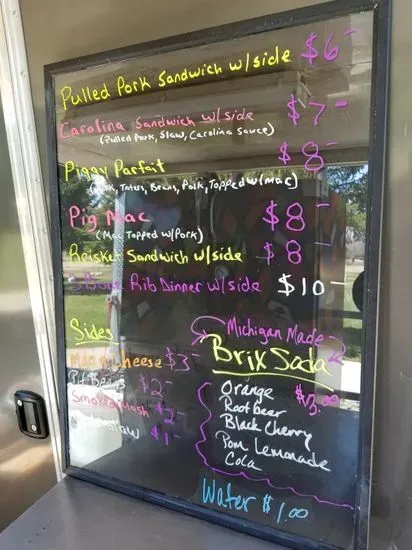 Pulled Pork Sandwich w/side $6-
Carolina Sandwich w/side $7-
(Pulled Pork, Slaw, Carolina Sauce)
Piggy Parfait $8-
Taters, Beans, Pork, Topped w/mac)
Pig Mac $8-
(Mac Topped w/Pork)
Brisket Sandwich w/side $8-
Bone Rib Dinner w/side $10-
Sides
Mac n Cheese $3-
Pit Beans $2-
Smoked Mash $2-
slaw $1-
Michigan Made
Brix Soda
Orange
Root Beer
Black Cherry
Pom Lemonade
Cola
Water $1.00